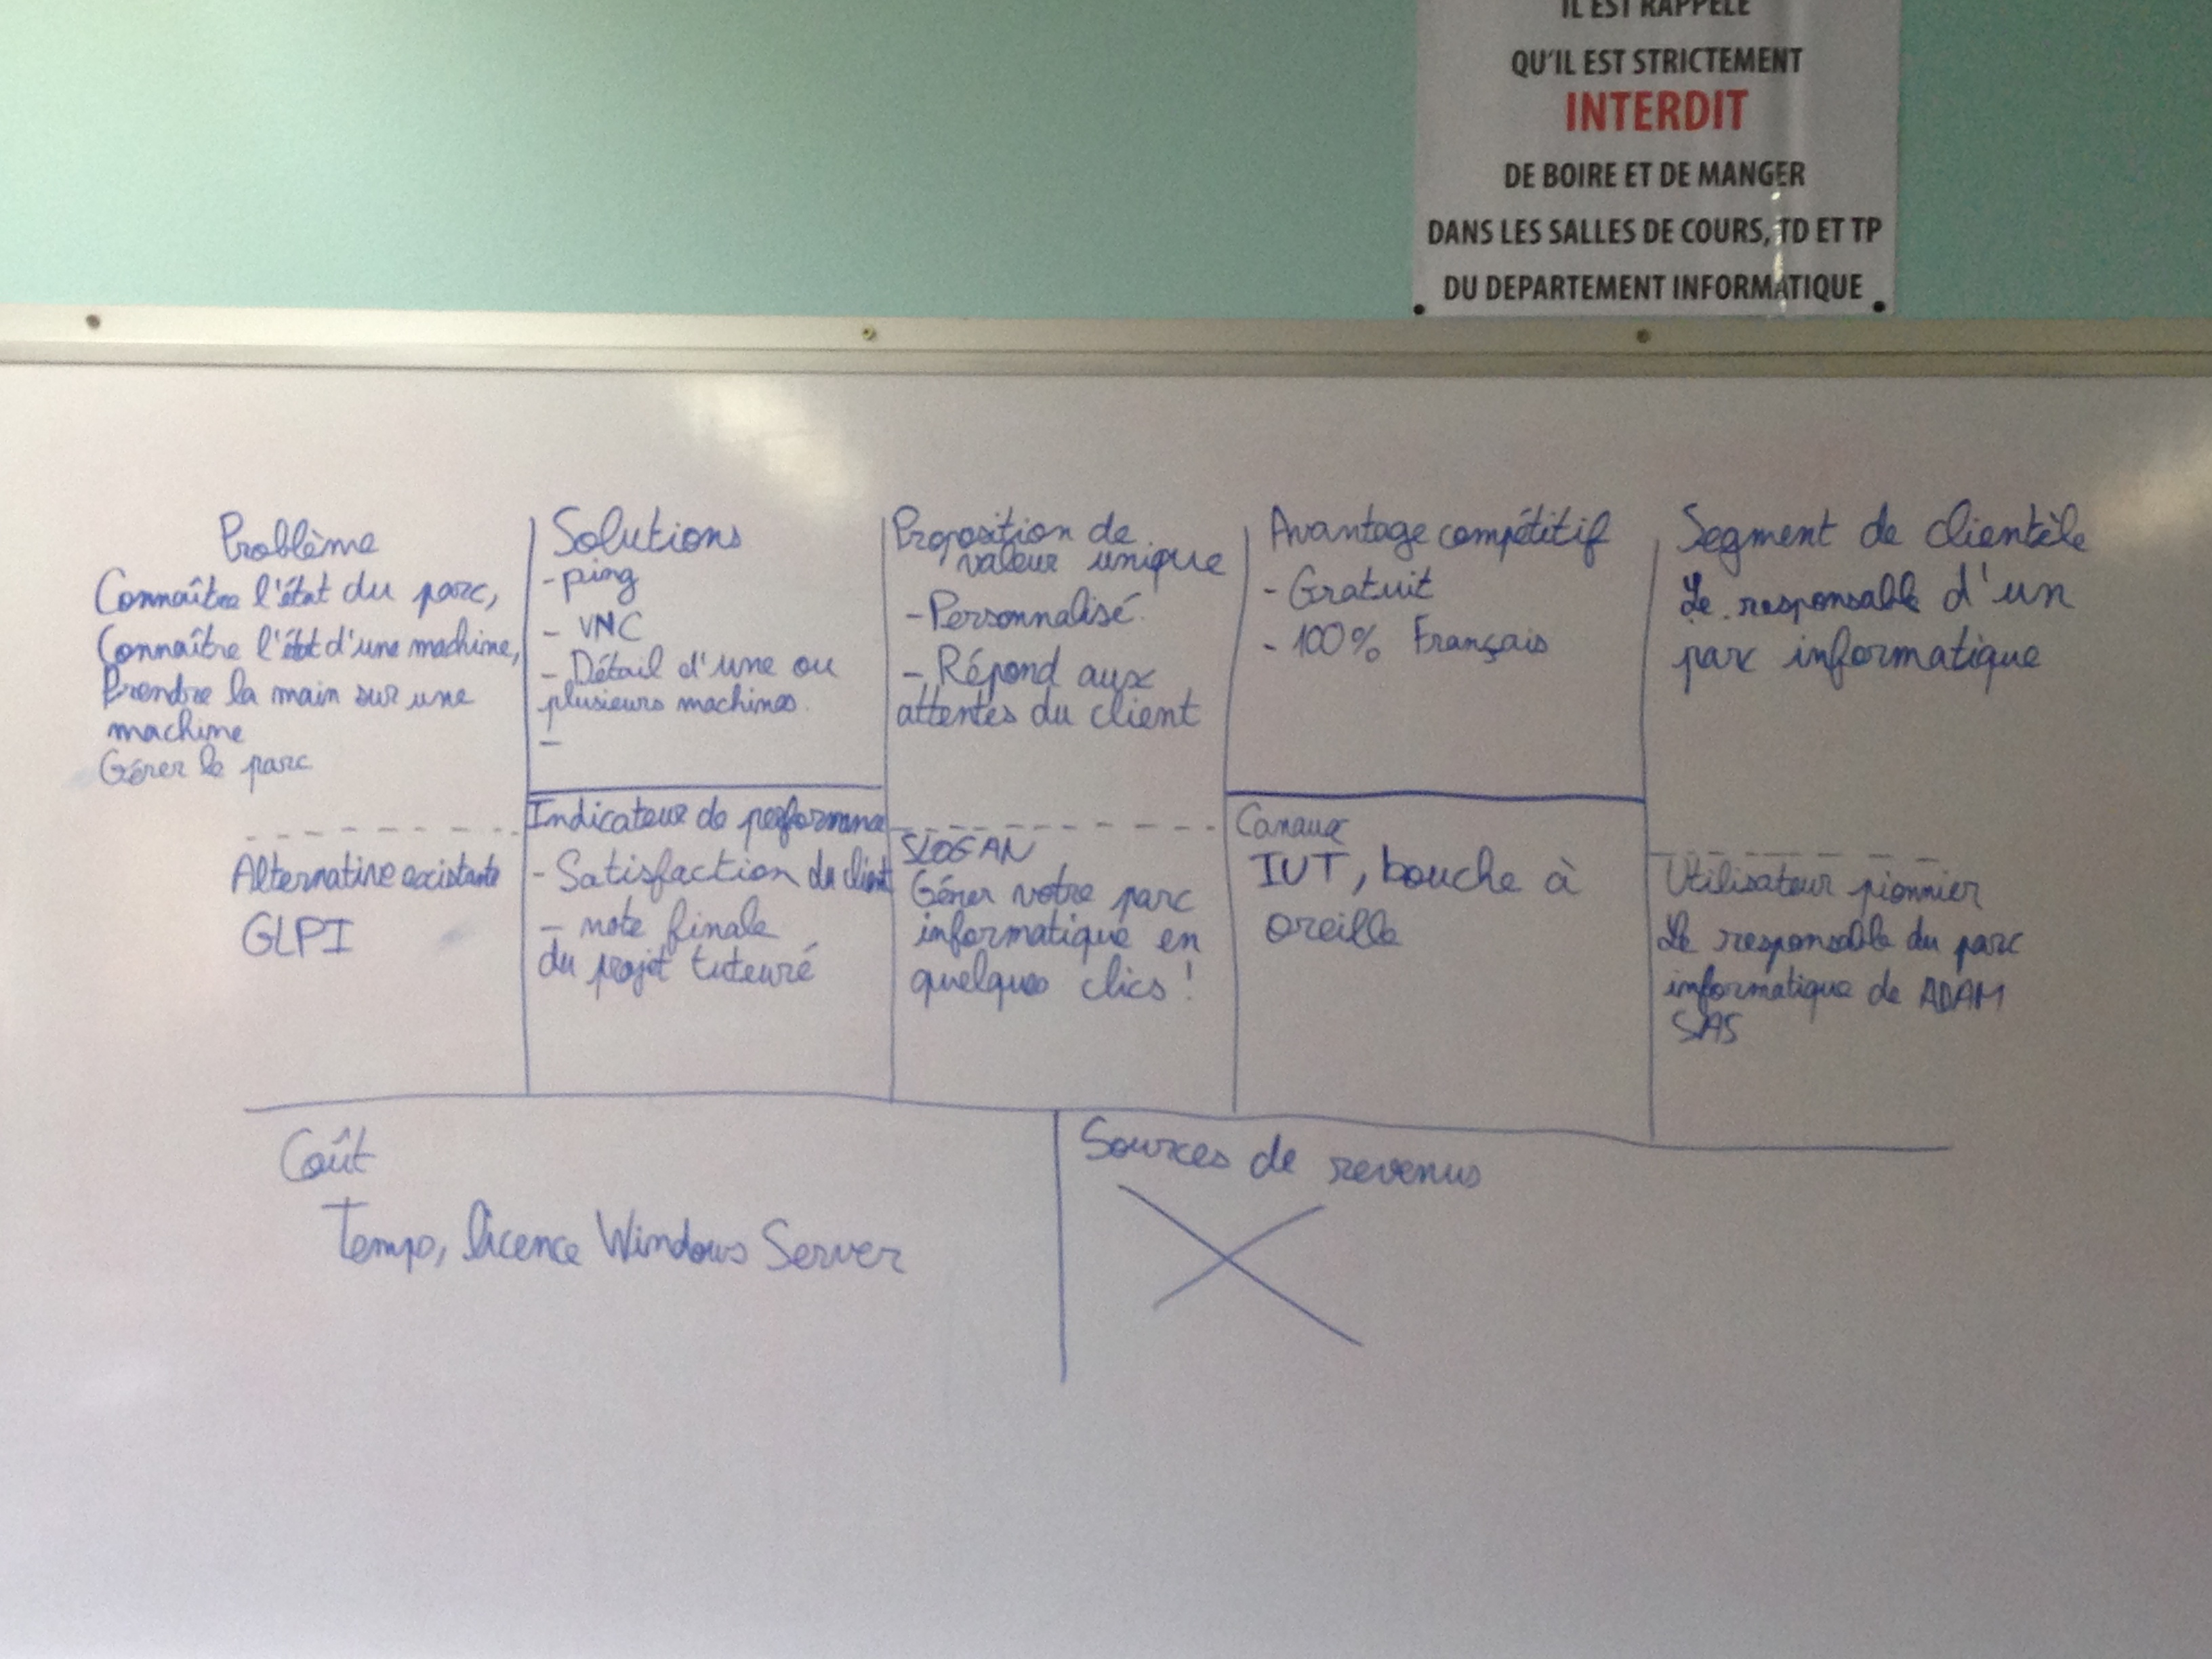 IL EST RAPPELÉ
QU'IL EST STRICTEMENT
INTERDIT
DE BOIRE ET DE MANGER
DANS LES SALLES DE COURS, TD ET TP
DU DEPARTEMENT INFORMATIQUE
Problème
Connaître l'état du parc,
Connaître l'état d'une machine,
Prendre la main sur une
machine
Gérer le parc
Alternative existante
GLPI
Solutions
- ping
- VNC
- Détail d'une ou
plusieurs machines.
-
Indicateur de performance
- Satisfaction du client
- note finale
du projet tuteuré
Proposition de
valeur unique
- Personnalisé
- Répond aux
attentes du client
SLOGAN
Gérer votre parc
informatique en
quelques clics !
Avantage compétitif
- Gratuit
- 100% Français
Canaux
IUT, bouche à
oreille
Segment de clientèle
Le responsable d'un
parc informatique
Utilisateur pionnier
Le responsable du parc
informatique de ADAM
SAS
Coût
Temps, licence Windows Server
Sources de revenus